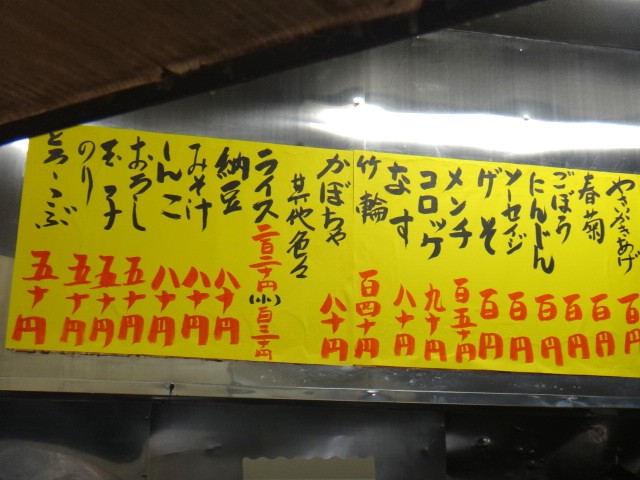 やさいかきあげ 百円
春菊 百円
ごぼう 百円
にんじん 百円
ソーセイジ 百円
ゲソ 百円
メンチ 百五十円
コロッケ 九十円
なす 八十円
竹輪 百四十円
かぼちゃ 八十円
其他色々
ライス 二百二十円(小)百三十円
納豆 八十円
みそ汁 八十円
しんこ 八十円
おろし 五十円
玉子 五十円
のり 五十円
とろゝこぶ 五十円